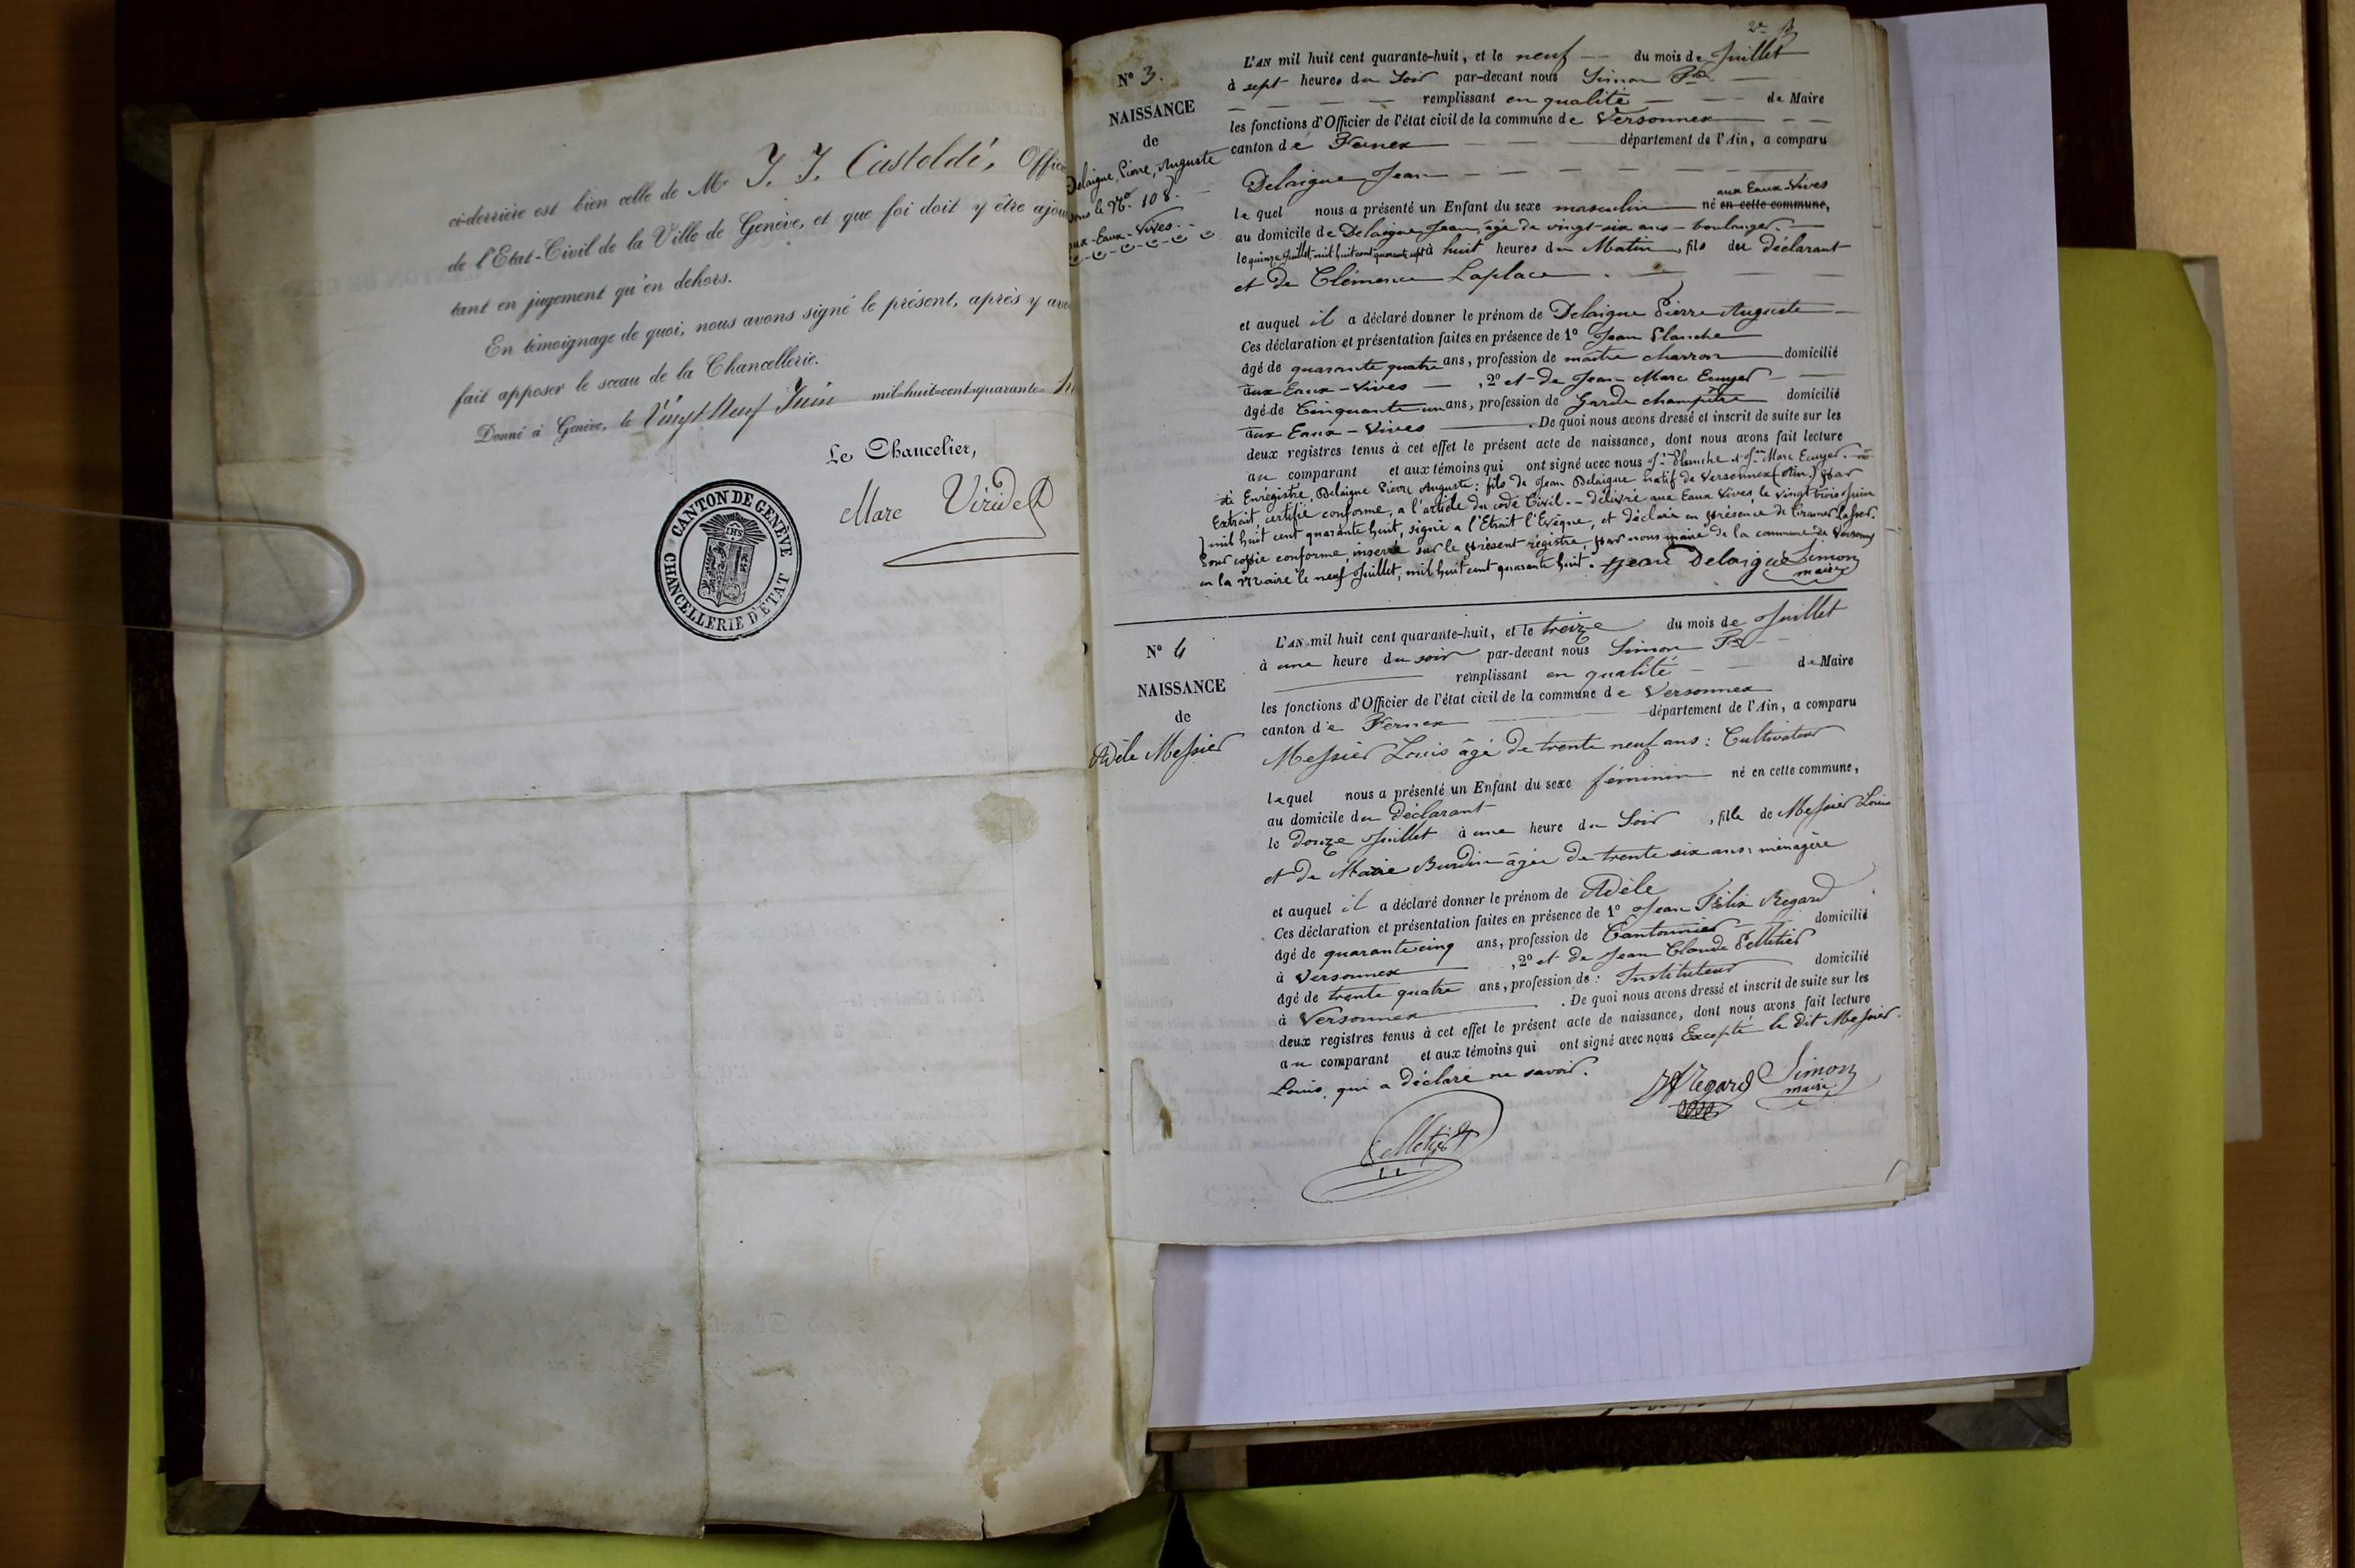 ci-derrière est bien celle de Mr J. J. Castoldi, Offic
de l'Etat-Civil de la Ville de Genève, et que foi doit y être ajou
tant en jugement qu'en dehors.
En témoignage de quoi, nous avons signé le présent, après y avo
fait apposer le sceau de la Chancellerie.
Donné à Genève, le Vingt Neuf Juin mil-huit-cent-quarante-
Le Chancelier,
Marc Viridet
CANTON DE GENÈVE
CHANCELLERIE D'ÉTAT
IHS
2e
N° 3.
NAISSANCE
de
Delaigue, Pierre, Auguste
sous le N°. 108.
aux-Eaux-Vives.
L'AN mil huit cent quarante-huit, et le neuf du mois de Juillet
à sept heures du Soir par-devant nous Simon
remplissant en qualité de Maire
les fonctions d'Officier de l'état civil de la commune de Versonnex
canton de Fernex département de l'Ain, a comparu
Delaigue Jean
aux Eaux-Vives
lequel nous a présenté un Enfant du sexe masculin né en cette commune,
au domicile de Delaigue Jean, âgé de vingt-six ans - boulanger.
le quinze Juillet, mil huit cent quarante sept à huit heures du Matin, fils du déclarant
et de Clémence Laplace
et auquel il a déclaré donner le prénom de Delaigue Pierre Auguste
Ces déclaration et présentation faites en présence de 1° Jean Planche
âgé de quarante quatre ans, profession de maître charron domicilié
aux-Eaux-Vives, 2° et de Jean Marc Ecuyer
âgé de Cinquante un ans, profession de Garde champêtre domicilié
aux Eaux-Vives. De quoi nous avons dressé et inscrit de suite sur les
deux registres tenus à cet effet le présent acte de naissance, dont nous avons fait lecture
au comparant et aux témoins qui ont signé avec nous Jn Planche et Jn Marc Ecuyer.
Enrégistre, Delaigue Pierre Auguste: fils de Jean Delaigue natif de Versonnex (Ain.) par
Extrait, certifié conforme, a l'article du code Civil. - délivré aux Eaux Vives, le vingt trois Juin
mil huit cent quarante huit, signé a l'Etrait l'Evêque, et déclaré en présence de
Pour copie conforme, inserré sur le présent régistre, par nous maire de la commune de Versonnex
en la Maire le neuf Juillet, mil huit cent quarante huit. Jean Delaigue Simon
maire
N° 4
NAISSANCE
de
Adèle Messier
L'AN mil huit cent quarante-huit, et le treize du mois de Juillet
à une heure du soir par-devant nous Simon
remplissant en qualité de Maire
les fonctions d'Officier de l'état civil de la commune de Versonnex
canton de Fernex département de l'Ain, a comparu
Messier Louis âgé de trente neuf ans: Cultivateur
lequel nous a présenté un Enfant du sexe féminin né en cette commune,
au domicile du déclarant
le douze Juillet à une heure du Soir, fille de Messier Louis
et de Marie Burdin âgée de trente six ans: ménagère
et auquel il a déclaré donner le prénom de Adèle
Ces déclaration et présentation faites en présence de 1° Jean Félix Regard
âgé de quarante cinq ans, profession de Cantonnier domicilié
à Versonnex, 2° et de Jean Claude Pelletier
âgé de trente quatre ans, profession de: Instituteur domicilié
à Versonnex. De quoi nous avons dressé et inscrit de suite sur les
deux registres tenus à cet effet le présent acte de naissance, dont nous avons fait lecture
au comparant et aux témoins qui ont signé avec nous Excepté le dit Messier
Louis, qui a déclaré ne savoir.
Regard Simon
maire